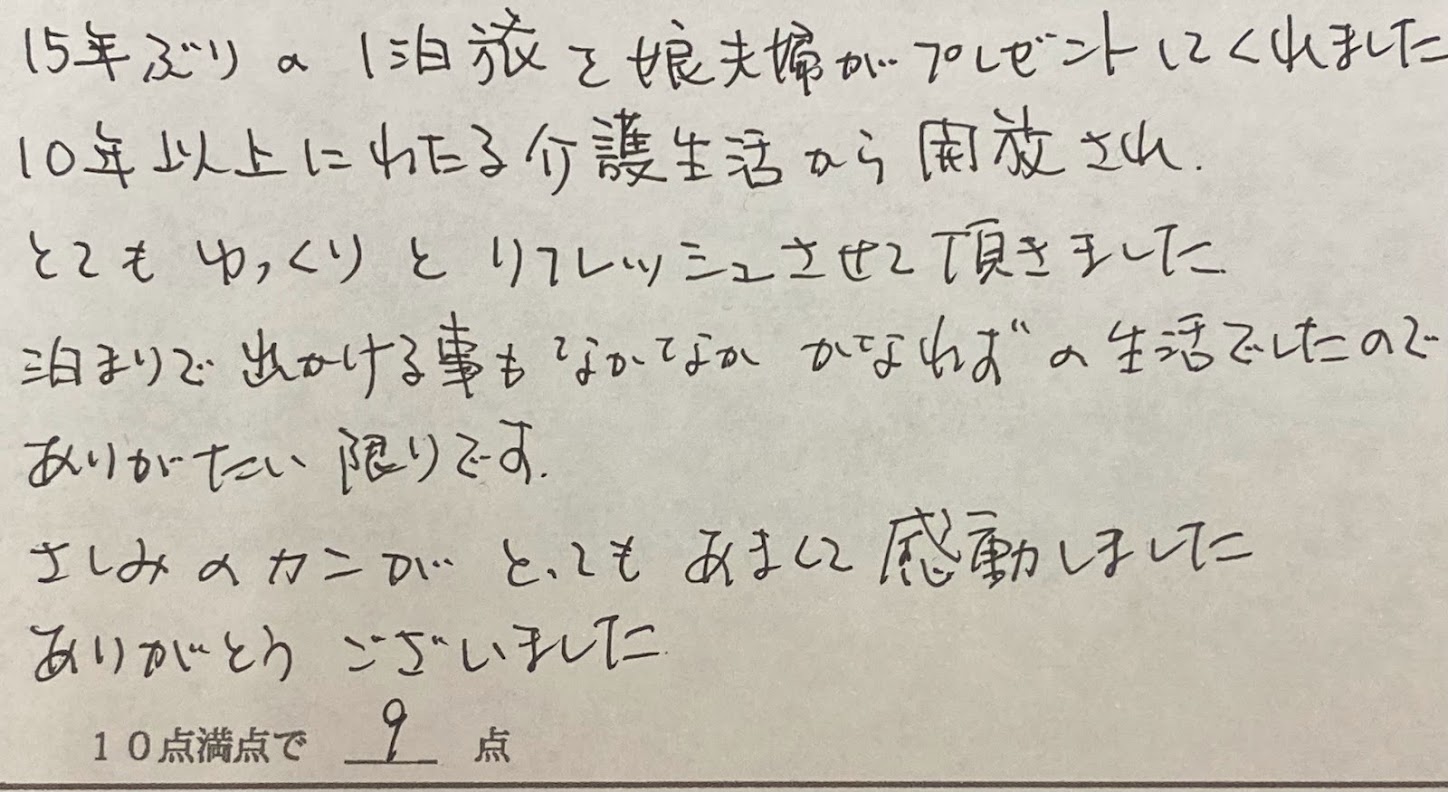 15年ぶりの1泊旅を娘夫婦がプレゼントしてくれました
10年以上にわたる介護生活から開放され.
とてもゆっくりとリフレッシュさせて頂きました
泊まりで出かける事もなかなかかなわずの生活でしたので
ありがたい限りです.
さしみのカニがとってもあまくて感動しました
ありがとうございました
10点満点で 9 点